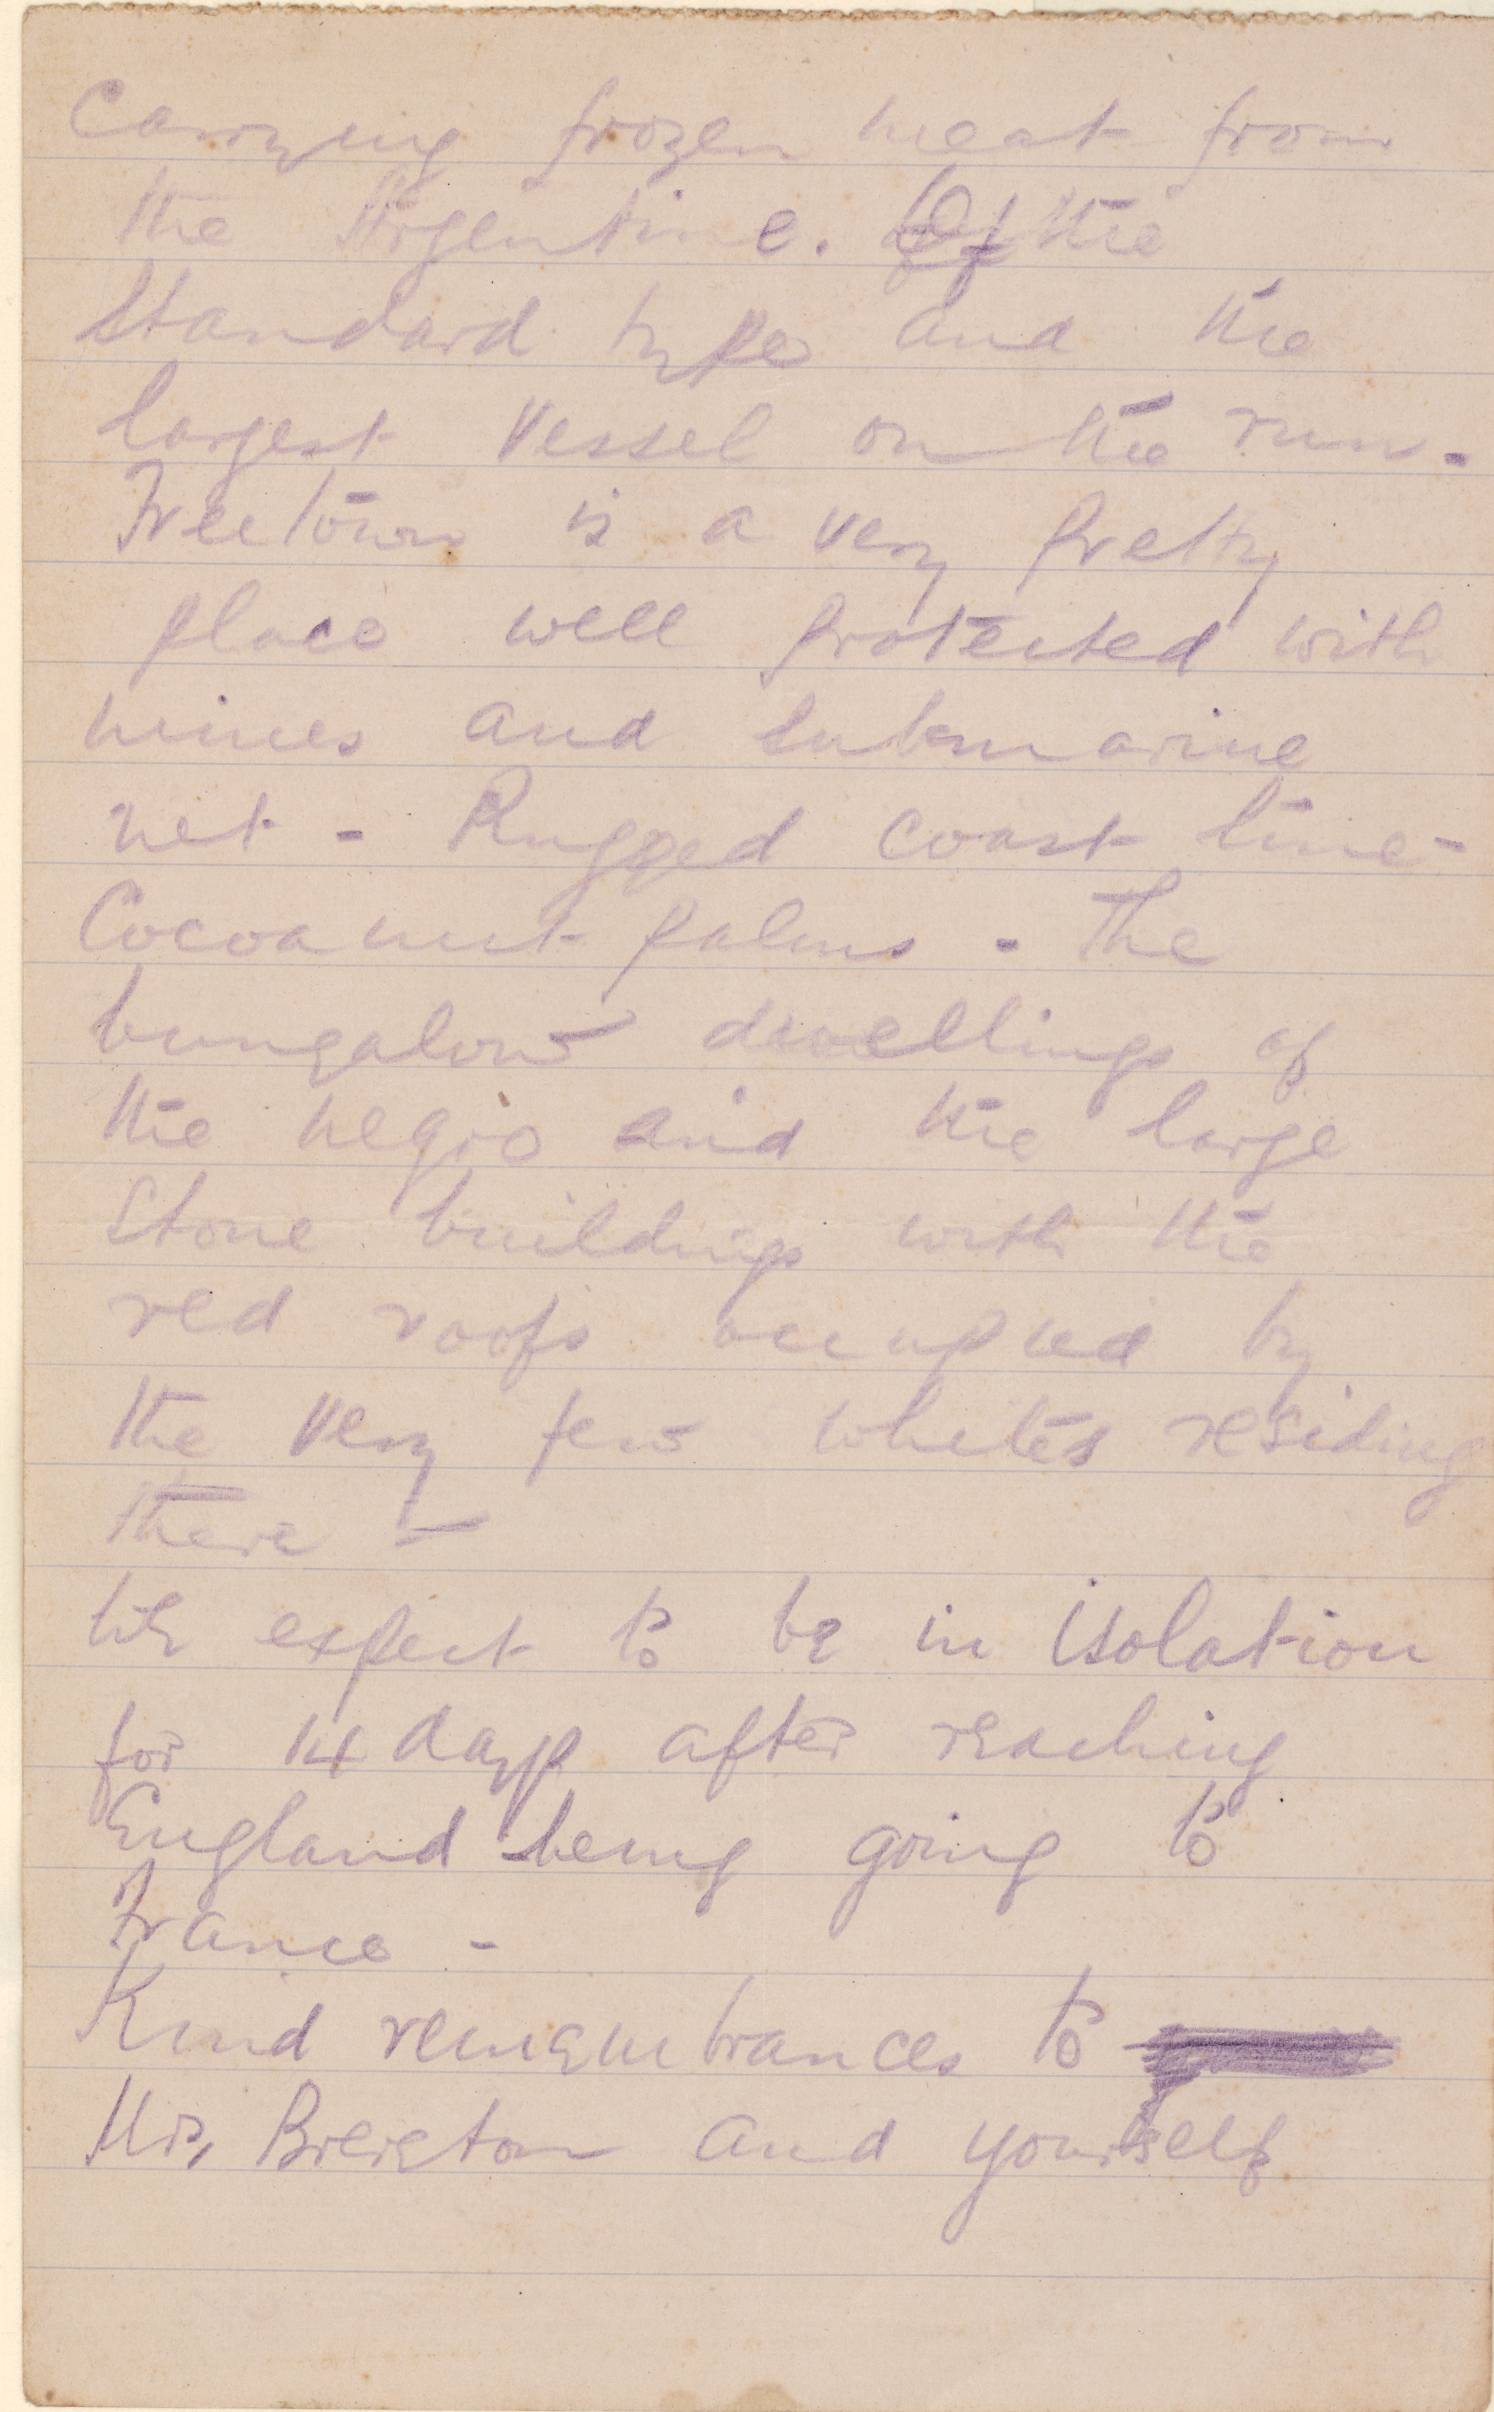 Carrying frozen meat from
the Argentine. Of the
Standard type and the
largest vessel on the run.
Freetown is a very pretty
place well protected with
mines and submarine
net - Rugged coast line -
Cocoanut palms - The
bungalow dwellings of
the negro and the large
stone buildings with the
red roofs occupied by
the very few whites residing
there -
We expect to be in isolation
for 14 days after reaching
England being going to
France -
Kind remembrances to
Mrs, Brereton and yourself